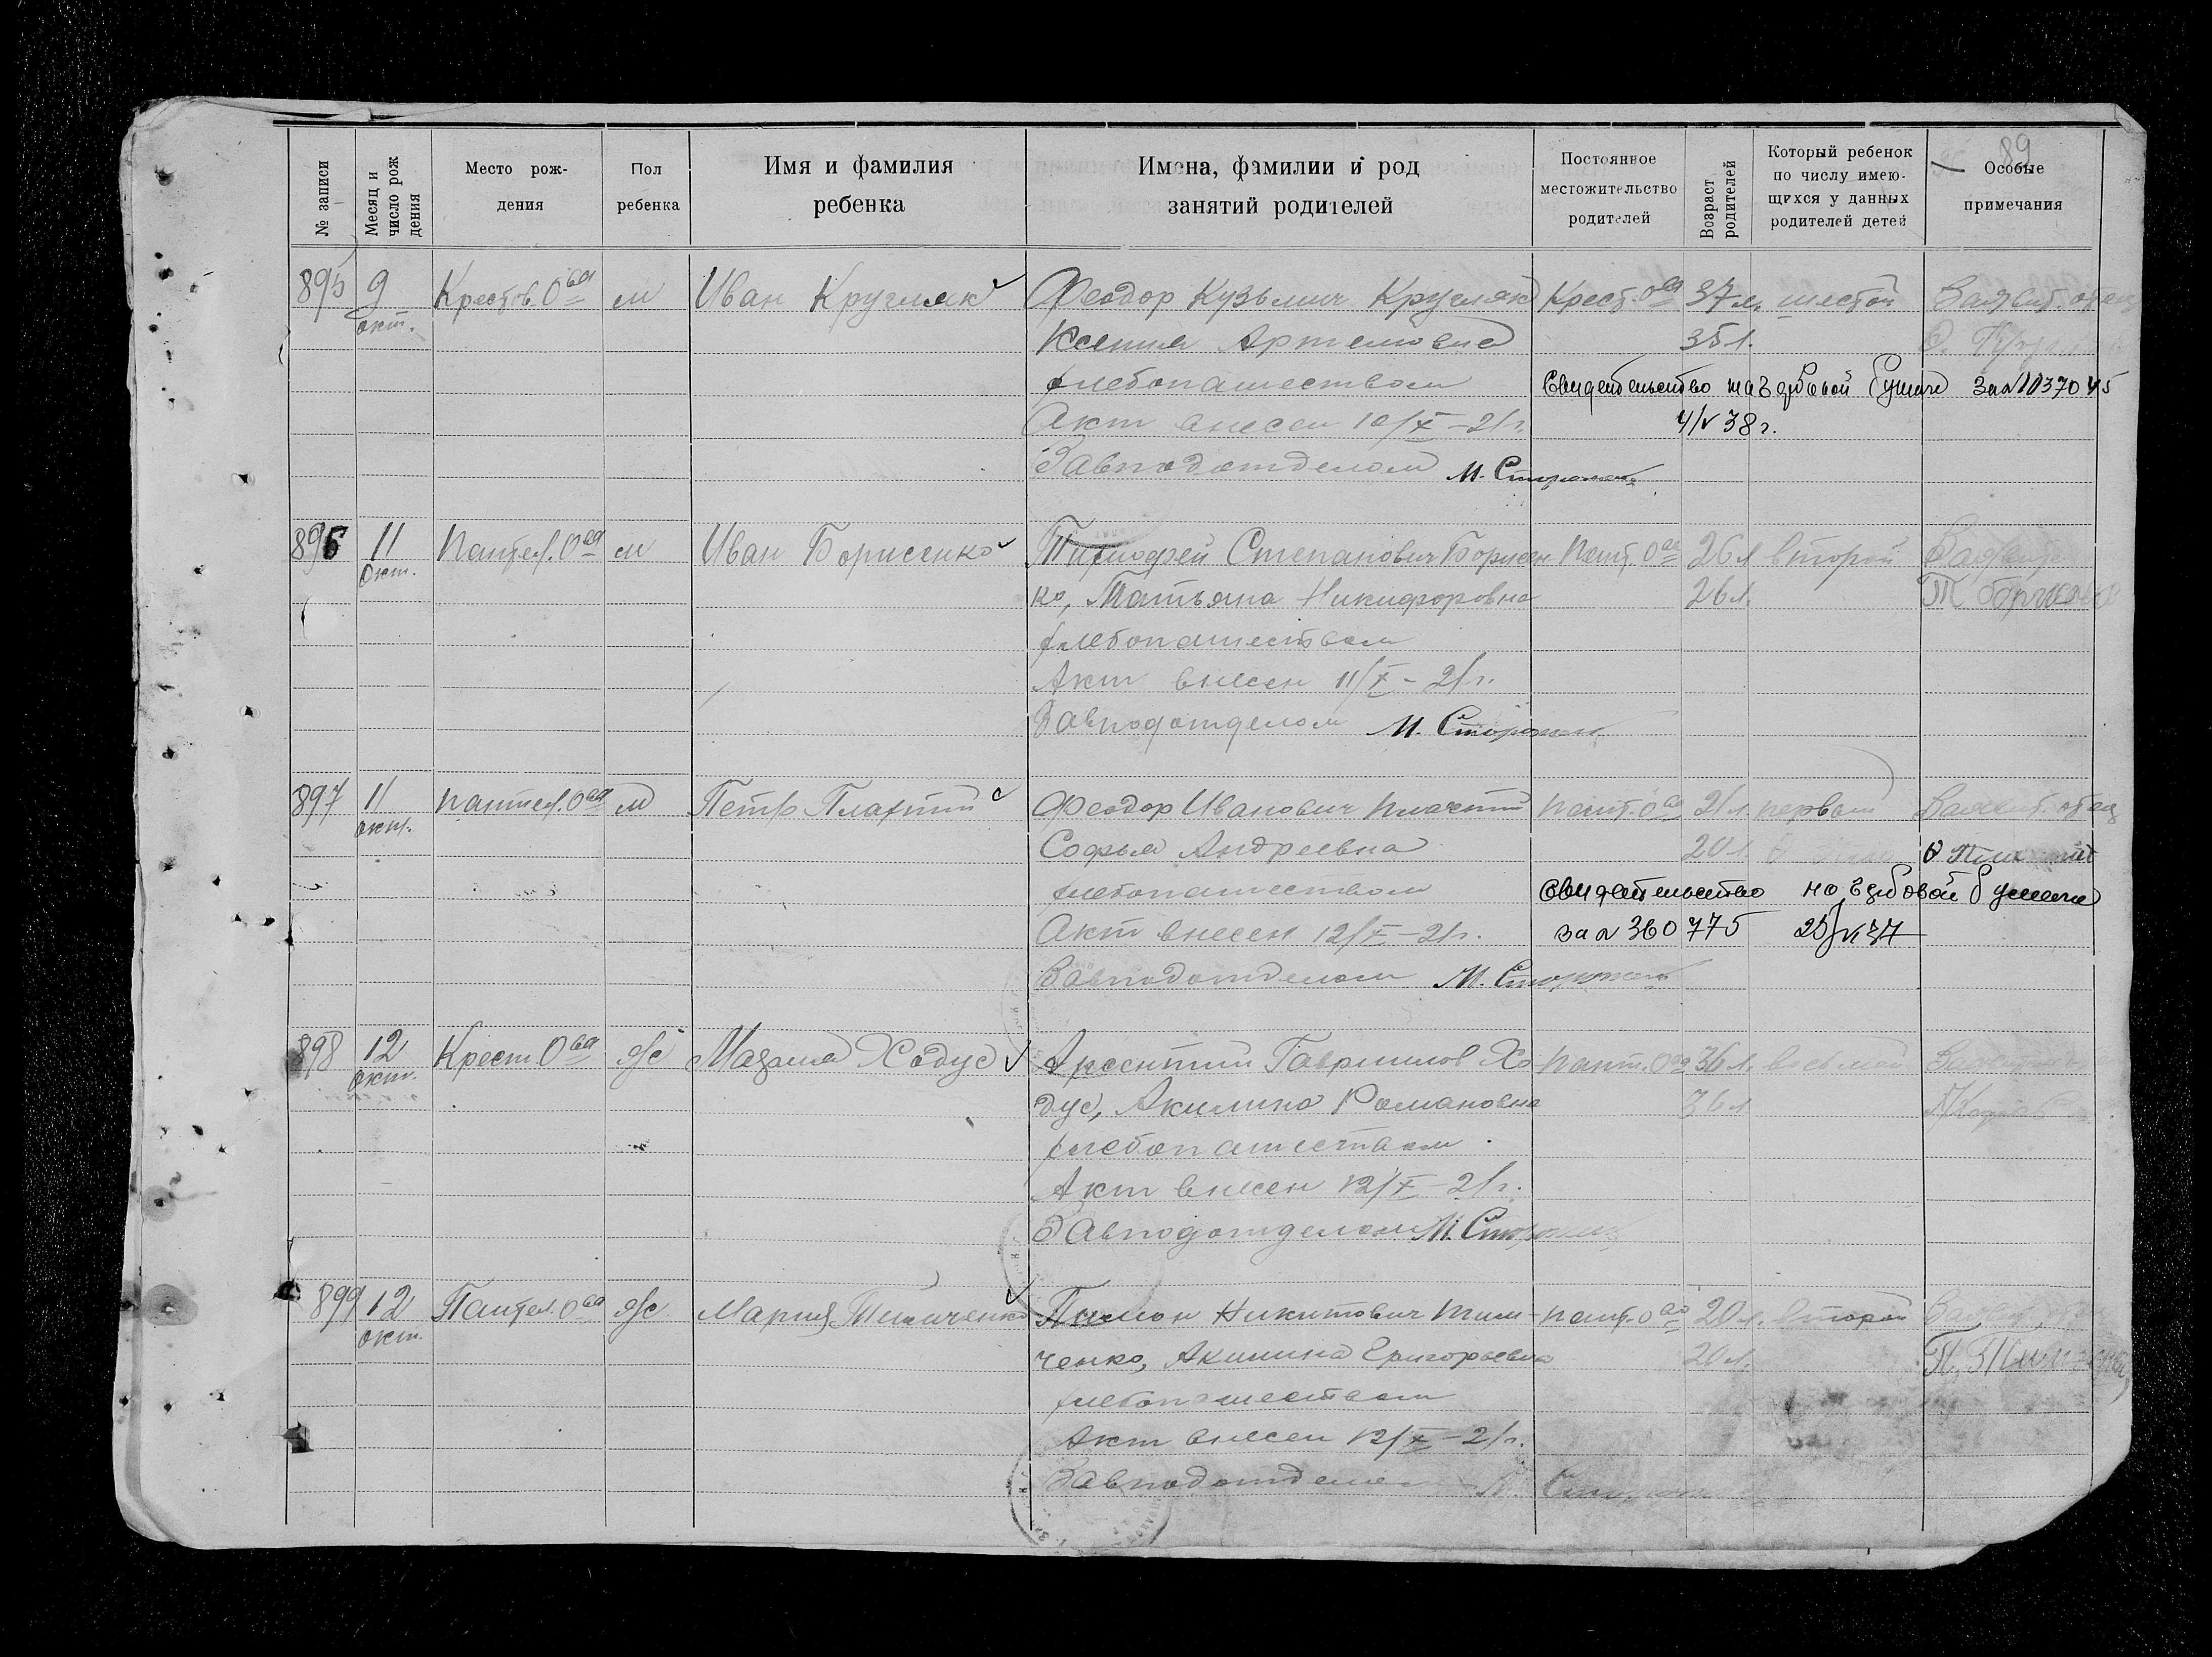 89
№ записи
Месяц и число рождения
Место рождения
Пол ребенка
Имя и фамилия ребенка
Имена, фамилии и род занятий родителей
Постоянное местожительство родителей
Возраст родителей
Который ребенок по числу имеющихся у данных родителей детей
Особые примечания
895 9 Крестов. Ова м Иван Кругляк Феодор Кузьмич Кругляк Крест. Ова 37 л. шестой Заявит. отец
окт. Ксения Артемовна 35 л.
хлебопашеством Свидетельство на гербовой бумаге за № 1037045
Акт внесен 10/X-21 г. 4/V 38 г.
Завподотделом М.
896 11 Пантел. Ова м Иван Борисенко Тимофей Степанович Борисен Пант. Ова 26 л второй
Окт. ко, Татьяна Никифоровна 26 л. Т Борисенко
хлебопашеством
Акт внесен 11/X-21 г.
Завподотделом М.
897 11 Пантел. Ова м Петр Плахтий Феодор Иванович Плахтий Пант. Ова 21 л. первый Заявит. отец
окт. Софья Андреевна 20 л.
хлебопашеством Свидетельство на гербовой бумаге
Акт внесен 12/X-21 г. за № 360775 25/VI 37
Завподотделом М.
898 12 Крест Ова ж Ходус Арсентий Гаврилов Хо- Пант. Ова 36 л. восьмой
Окт. дус, Акилина Романовна 36 л
хлебопашеством
Акт внесен 12/X-21 г.
Завподотделом М.
899 12 Пантел. Ова ж Мария Тимченко Никитович Тим- Пант. Ова 20 л. второй
окт. ченко, Акилина Григорьевна 20 л. П. Тимченко
хлебопашеством
Акт внесен 12/X-21 г.
Завподотделом